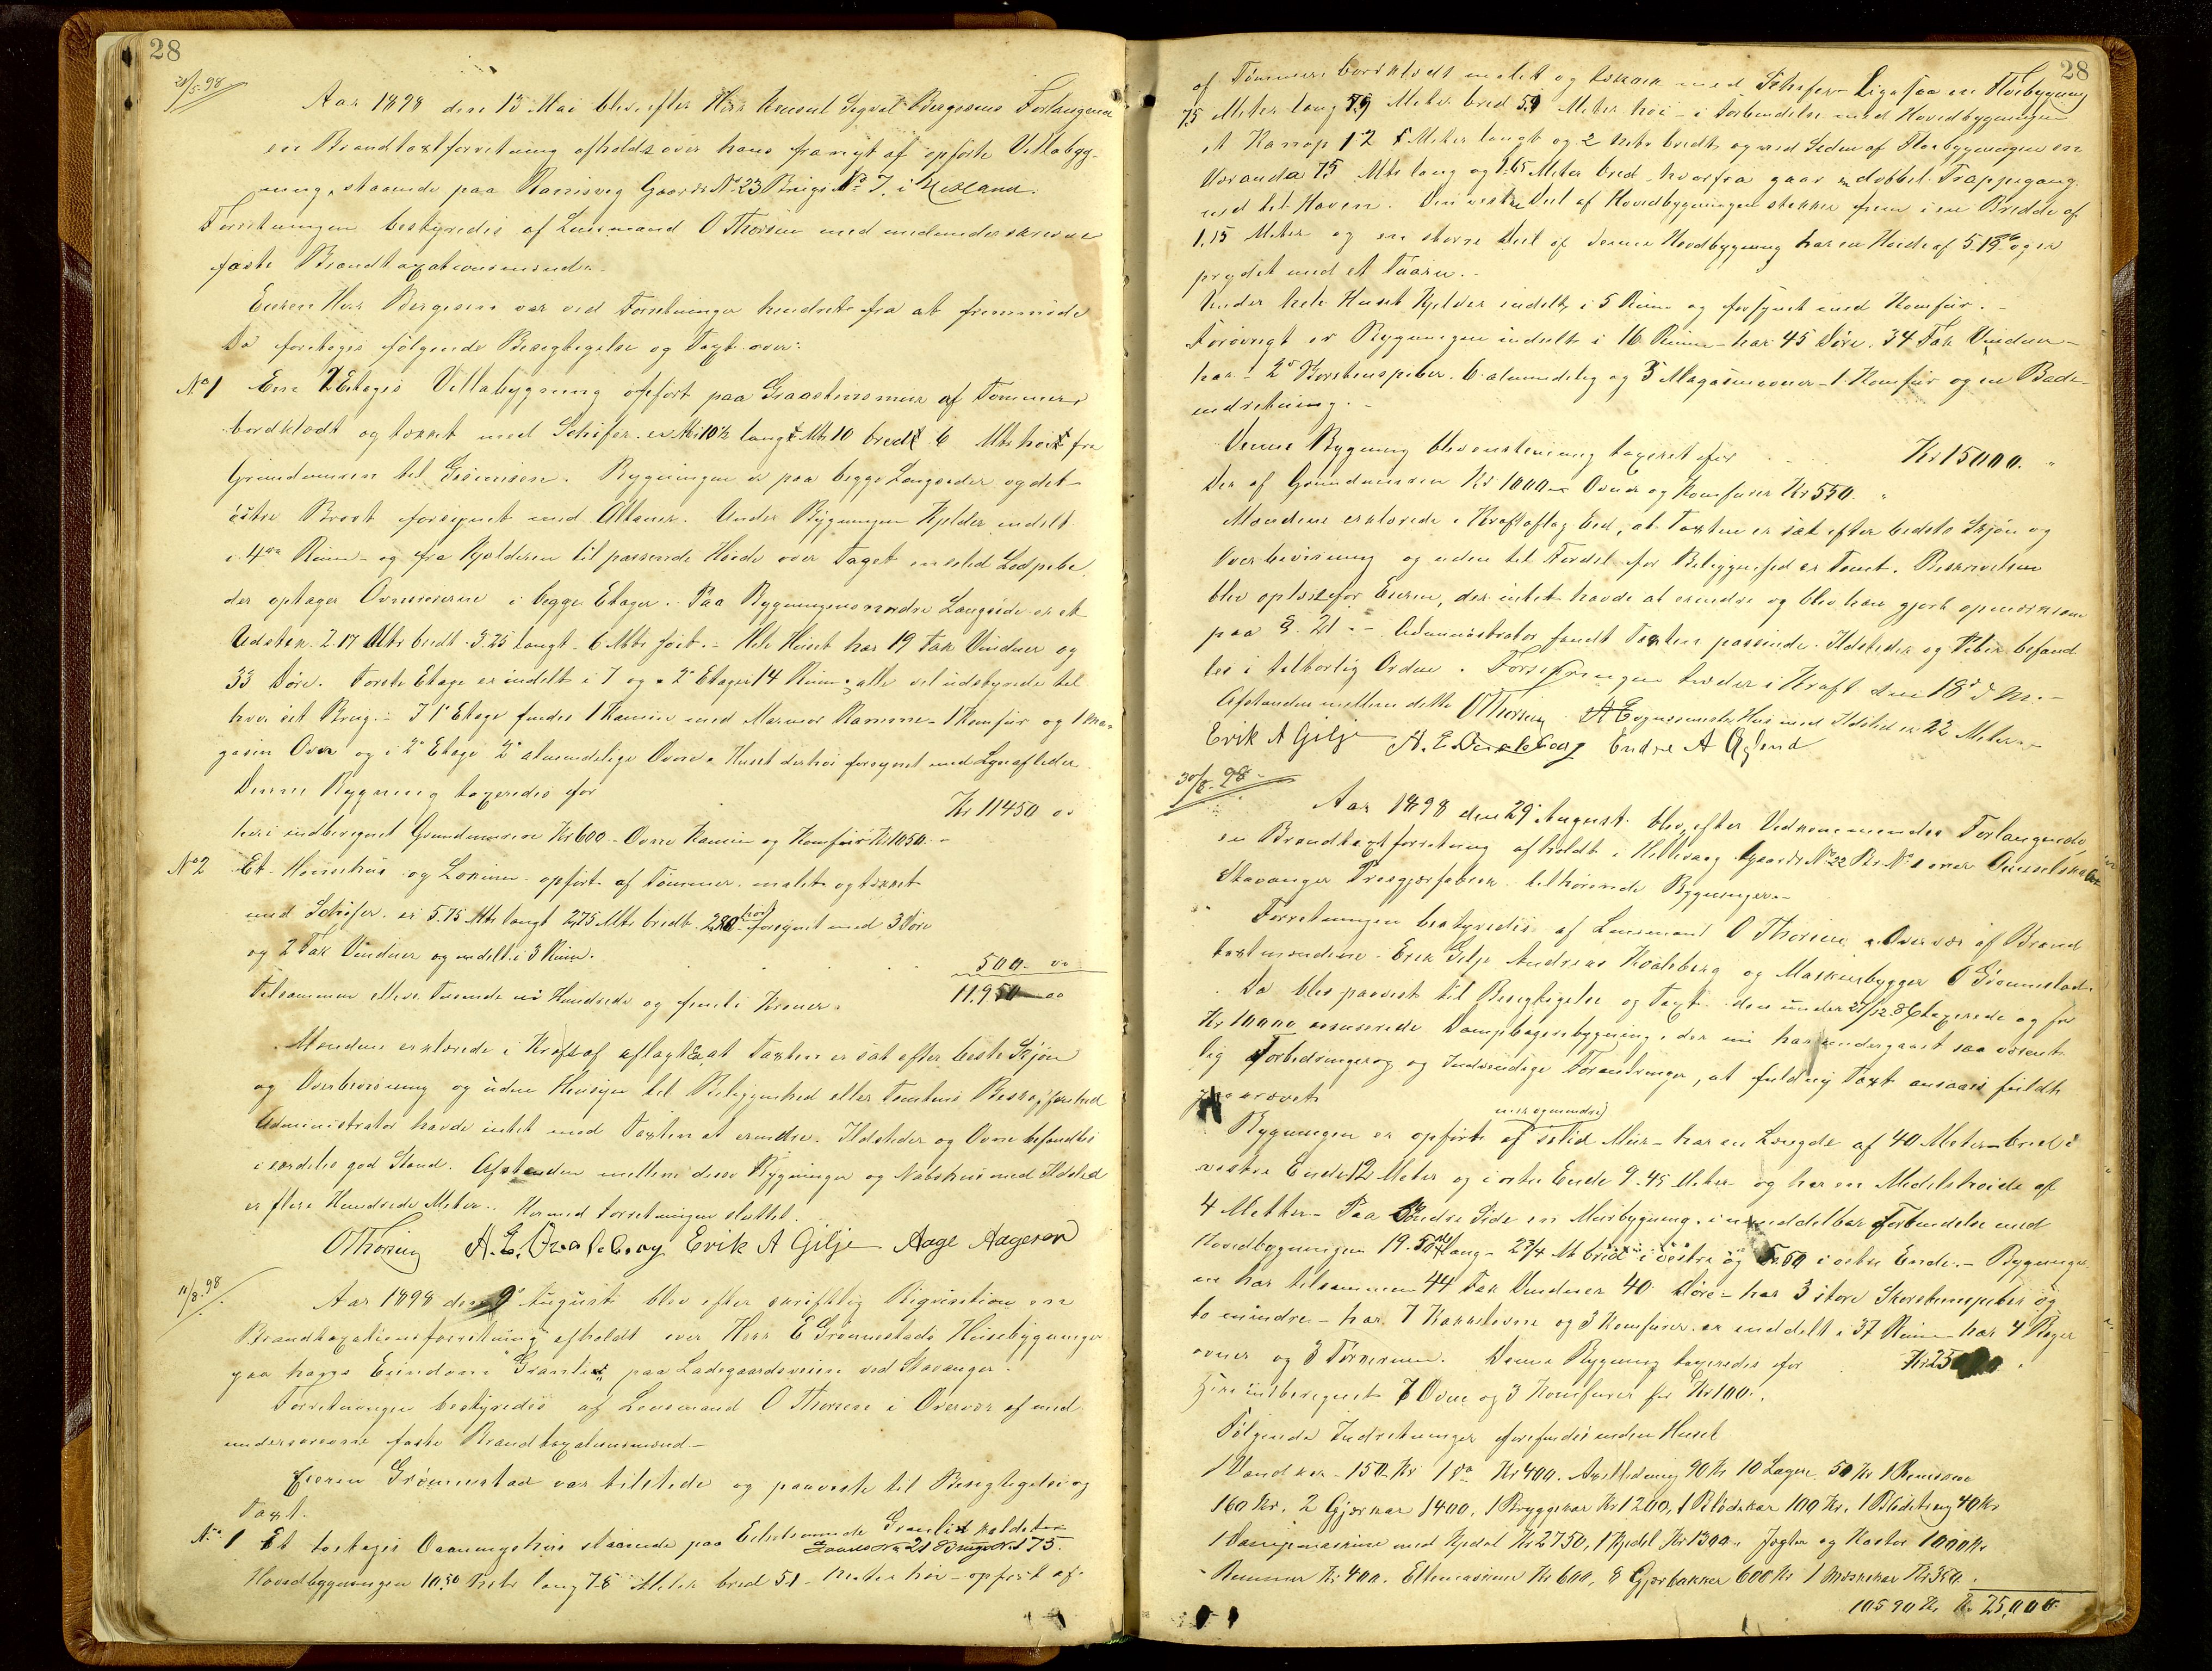 28
28/5 98
Aar 1898 den 13 Mai blev efter Herr Konsul Sigval Bergesens Forlangende
en Brandtaxtforretning afholdt over hans fra nyt af opførte Villabyg-
ning, staaende paa Ramsvig Gaards No 23 Brugs No 7. i Hetland.
Forretningen bestyredes af Lensmand O Thorsen med medunderskrevne
faste Brandtaxationsmænd.
Eieren Herr Bergesen var ved Forretninger hindret fra at fremmøde
Da foretoges følgende Besigtigelse og Taxt over:
No 1 Een 2 Etages Villabygning opført paa Graastensmur af Tømmer,
bordklædt og tækket med Schifer er Mtr 10½ langt Mtr 10 bredt 6 Mtr høit fra
Grundmuren til Gesimsen. Bygningen er paa begge Langsider og det
østre Brøst forsynet med Altaner. Under Bygningen Kjelder indelt
i 4re Rum - og fra Kjelderen til passende Høide over Taget en solid Lodpibe
der optager Ovnsrørene i begge Etager. Paa Bygningens nordre Langside er et
Udstik 2.17 Mtr bredt - 3.25 langt - 6 Mtr høit. - Hele Huset har 19 Fak Vinduer og
33 Døre. Første Etage er indelt i 7 og 2den Etager 14 Rum, alle vel udstyrede til
hver sit Brug. - I 1ste Etage findes 1 Kamin med Marmor Ramme - 1 Komfur og 1 Ma-
gasin Ovn og i 2den Etage 2de almindelige Ovne. Huset derhos forsynet med Lynafleder
Denne Bygning taxeredes for Kr 11450 00
heri indberegnet Grundmuren Kr 600 - Ovne Kamin og Komfur Kr 1050. -
No 2 Et Hønsehus og Lokum opført af Tømmer, malet og tækket
med Schifer er 5.75 Mtr langt 2,75 Mtr bredt 2,80 høit forsynet med 3 Døre
og 2 Fak Vinduer og indelt i 3 Rum. 500. 00
Tilsammen Elleve Tusende ni Hundrede og femti Kroner. 11.950 00
Mændene erklærede i Kraft af aflagt Ed, at Taxten er sat efter beste Skjøn
og Overbevisning og uden Hensyn til Beliggenhed eller Tomtens Beskaffenhed
Administrator havde intet mod Taxten at erindre. Ildsteder og Ovne befandtes
i særdeles god Stand. Afstanden mellem disse Bygninger og Nabohus med Ildsted
er flere Hundrede Meter. Hermed Forretningen sluttet.
O Thorsen A. E. Qvaleberg Erik A Gilje Aage Aagesen
11/8 98
Aar 1898 den 9de August blev efter skriftlig Rigvisition en
Brandtaxationsforretning afholdt over Herr E Grønnestads Husebygninger
paa hans Eiendom "Granlid" paa Ladegaardsveien ved Stavanger.
Forretningen bestyredes af Lensmand O Thorsen i Overvær af med
underskrevne faste Brandtaxationsmænd -
Eieren Grønnestad var tilstede og paaviste til Besigtigelse og
Taxt.
No 1 Et toetages Vaaningshus staaende paa Granlid kaldet
Gaards No 21 Brugs No 175.
Hovedbygningen 10.50 Meter lang 7.8 Meter bred 5.1 Meter høi - opført af
28
af Tømmer bordklædt malet og tækket med Schifer - Ligesaa en Fløibygning
7.5 Meter lang 7.9 Meter bred 5.9 Meter høi - i Forbindelse med Hovedbygningen
et Karnap 1.2 Meter langt og 2 Meter bredt, og ved Siden af Fløibygningen en
Veranda 7.5 Mtr lang og 1.65 Meter bred - hvorfra gaar en dobbel Trappegang
ned til Haven. Den vestre Deel af Hovedbygningen stikker frem i en Bredde af
1.15 Meter og en større Deel af denne Hovedbygning har en Høide af 5.15 og er
prydet med et Taarn.
Under hele Huset Kjelder indelt i 5 Rum og forsynet med Komfur. -
Forøvrigt er Bygningen indelt i 16 Rum - har 45 Døre. 34 Fak Vinduer -
har 2de Skorstenspiber. 6 almindelig og 3 Magasinovner - 1 Komfur og en Bade-
indretning. -
Denne Bygning blev enstemmig taxeret for Kr 15000. "
Der af Grundmuren Kr 1000 - Ovner og Komfurer Kr 550. "
Mændene erklærede i Kraft aflag Eed, at Taxten er sat efter bedste Skjøn og
Overbevisning og uden til Fordel for Beliggenhed er Tomt. Beskrivelsen
blev oplæst for Eieren, der intet havde at erindre og blev han gjort opmærksom
paa § 21. - Administrator fandt Taxten passende. Ildsteder og Piber befand
tes i tilbørlig Orden. Forsikringen træder i Kraft den 18de d. M. -
Afstanden mellem dette Hus med Ildsted er 22 Meter. -
O Thorsen
Erik A Gilje A. E. Qvaleberg Endre A
30/8 - 98
Aar 1898 den 29de August blev efter Vedkommendes Forlangende
en Brandtaxtforretning afholdt i Hillevaag Gaards No 22 Br. No 1 over
Stavanger Presgjærfabrik tilhørende Bygninger. -
Forretningen bestyredes af Lensmand O Thorsen i Overvær af Brand
taxtmændene Erik Gilje Andreas Kvaleberg og Maskinbygger O Grønnestad.
Da blev paavist til Besigtigelse og Taxt den under 27/12 86 taxerede og for
Kr 10000 assurerede Dampbageribygning, der nu har undergaaet saa væsent-
lig Forbedringer og Indvendige Forandringer, at fuld ny Taxt ansaaes fuldt
paakrævet
Bygningen er opført af solid Mur - har en Længde af 40 Meter - bred i
vestre Ende 12 Meter og i østre Ende 9.45 Meter og har en Medelshøide af
4 Metter - Paa Søndre Side en Murbygning i umiddelbar Forbindelse med
Hovedbygningen 19.50 Mtr lang - 2¾ Mt bred i vestre og 5.50 i østre Ende. - Bygninge
ne har tilsammen 44 Fak Vinduer 40 Døre - har 3 store Skorstenspiber og
to mindre - har 7 Kakkelovne og 3 Komfurer er inddelt i 37 Rum - har 4 Bager
ovner og 3 Tørkerum. Denne Bygning taxeredes for Kr 25000.
Heri indberegnet 7 Ovne og 3 Komfurer for Kr 100.
Følgende Indretninger forefindes inden Huset
1 Vandkar - 150 Kr 1 do Kr 400. Axelledning 90 Kr 10 Lagere 50 Kr
160 Kr, 2 Gjærkar 1400, 1 Bryggekar Kr 1200, 1 Blødekar 100 Kr. 40 Kr
1 Dampmaskine med Kjedel Kr 2750, 1 Kjedel Kr 1300. 1000 Kr
Remmer Kr 400. Kr 600, 8 Gjærbakker 600 Kr 1 Mæskekar Kr 350.
10590 Kr Kr 25,000